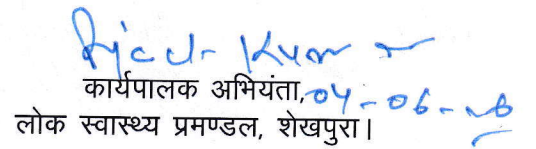 Kumar
कार्यपालक अभियंता, 04-06-
लोक स्वास्थ्य प्रमण्डल, शेखपुरा।